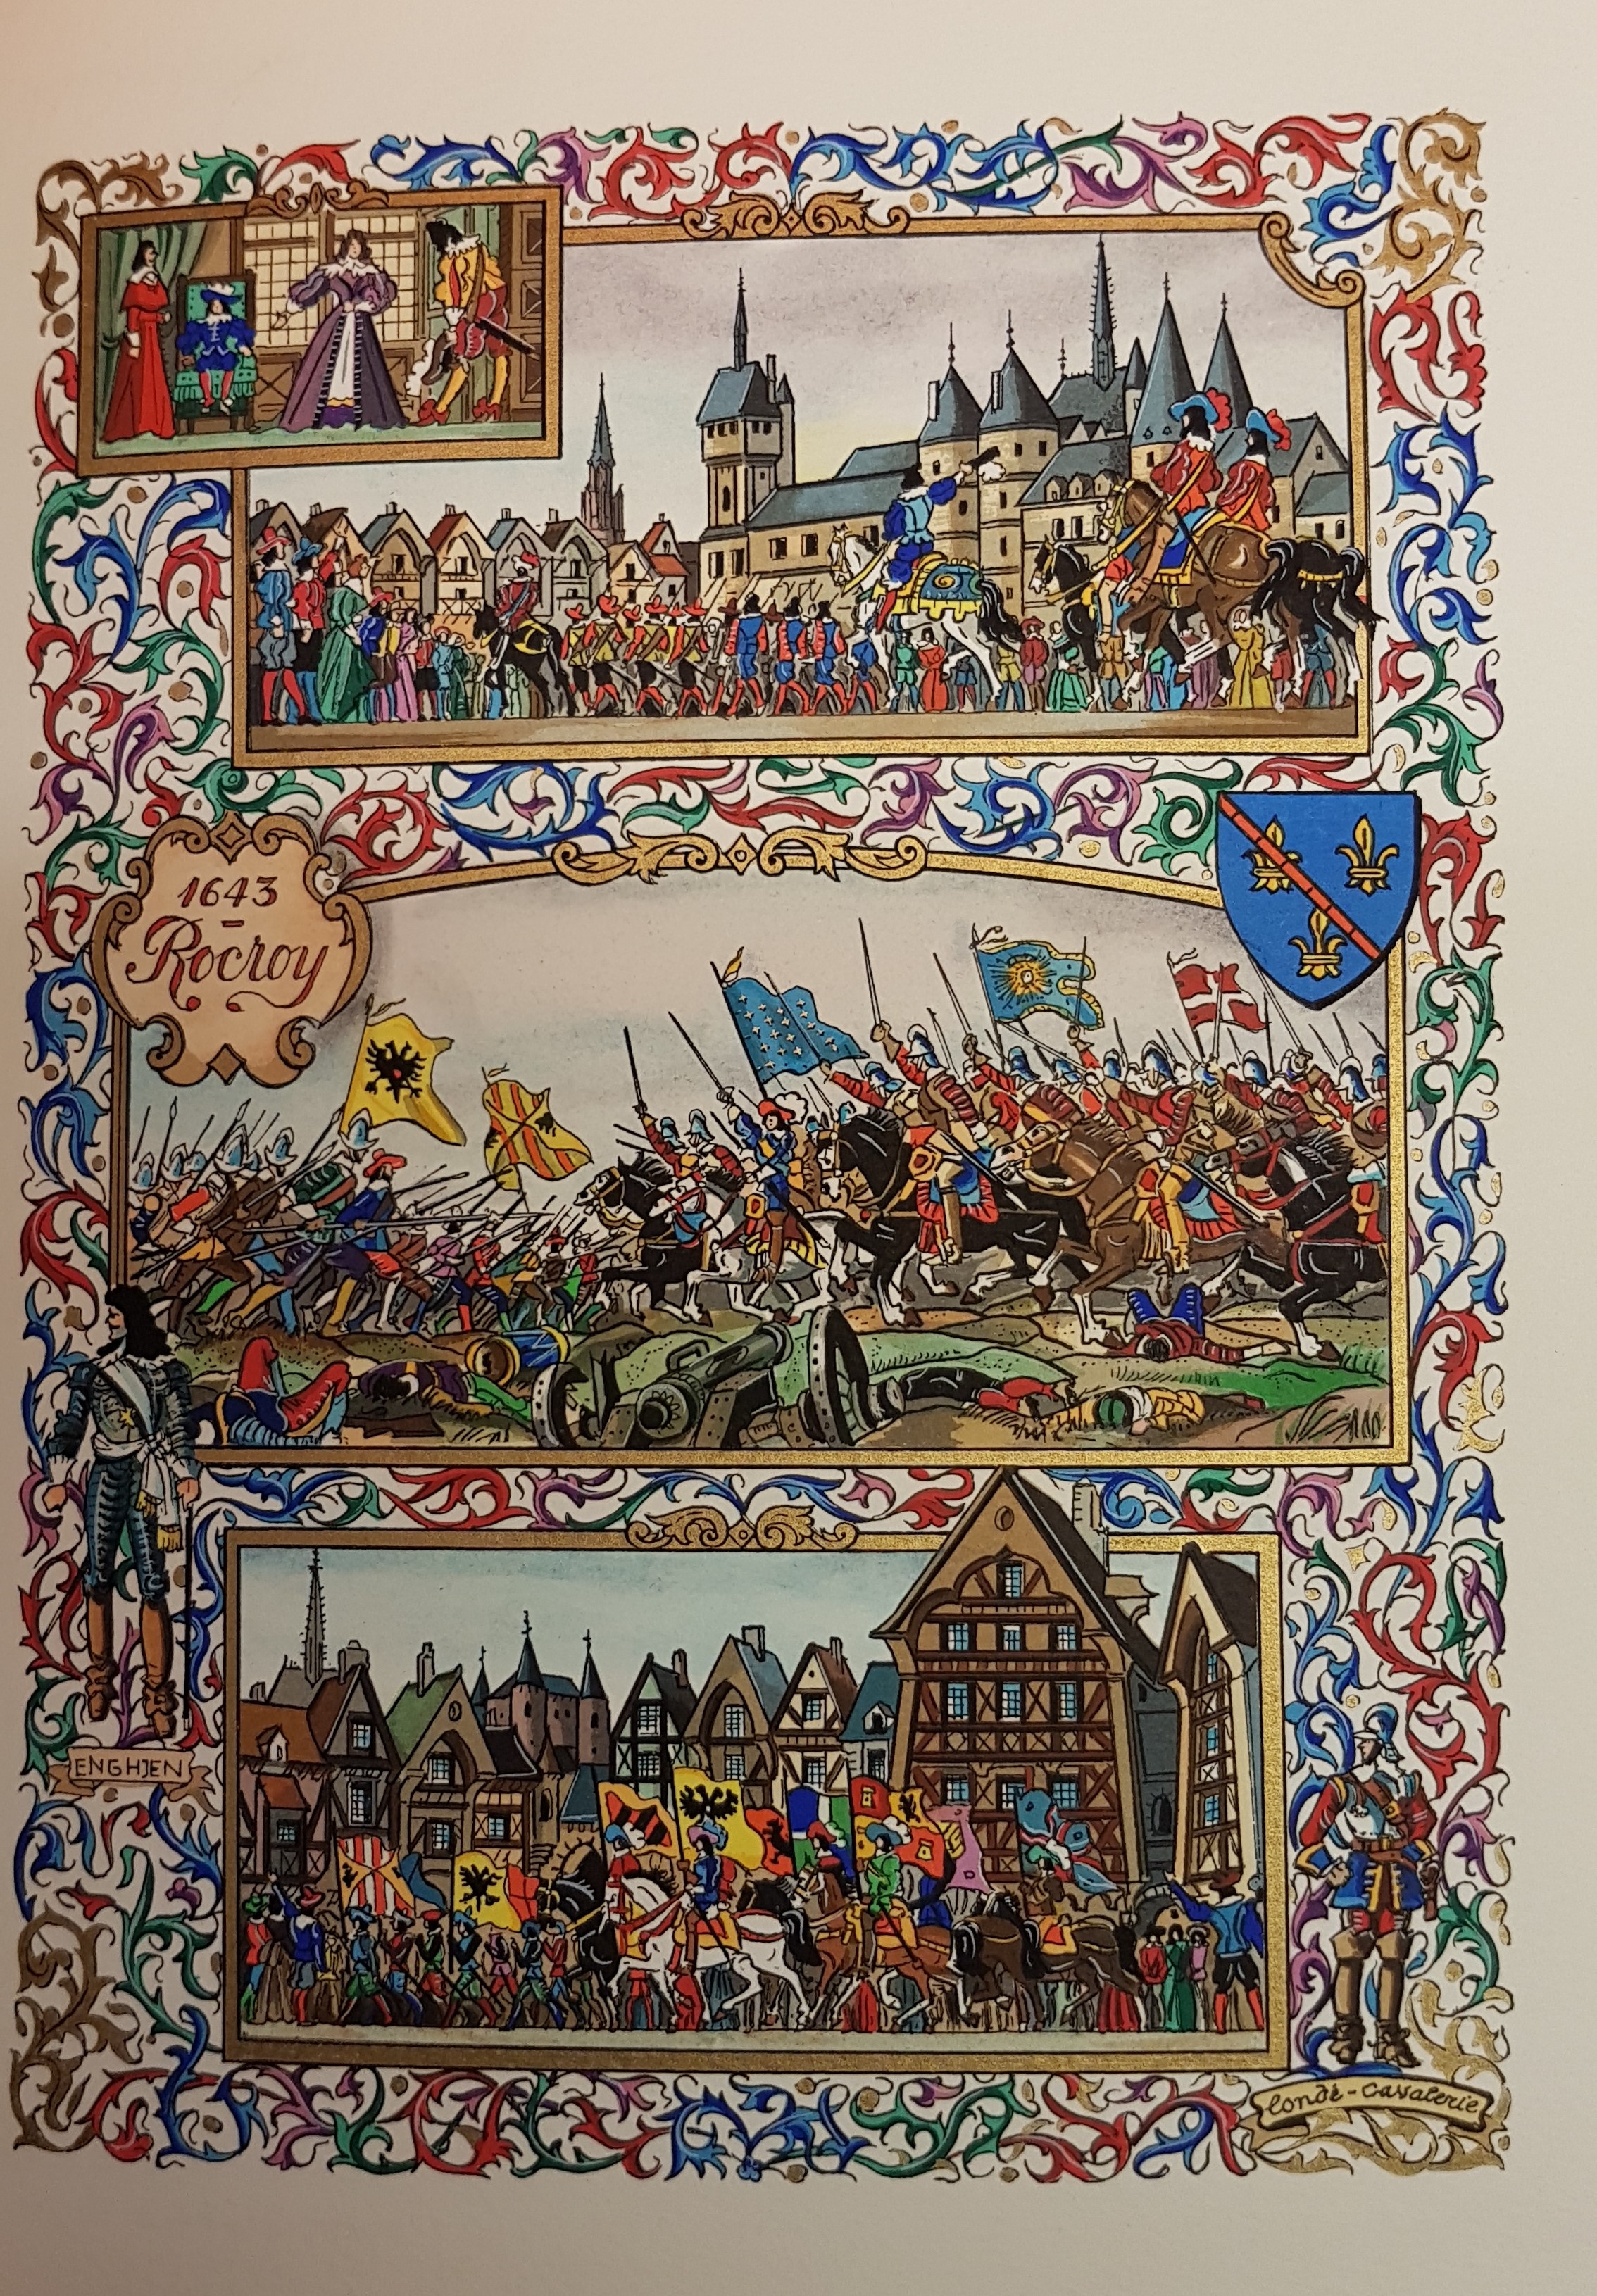 1643
-
Rocroy
ENGHJEN
Condé-Cavalerie